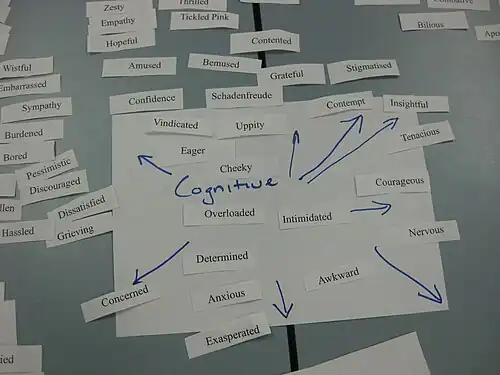 Thrilled
Zesty
Tickled Pink
Empathy
Bilious
Hopeful
Contented
Wistful
Amused
Bemused
Grateful
Stigmatised
Sympathy
Confidence
Schadenfreude
Contempt
Insightful
Burdened
Vindicated
Uppity
Tenacious
Bored
Eager
Pessimistic
Cheeky
Discouraged
Cognitive
Courageous
Dissatisfied
Overloaded
Intimidated
Hassled
Grieving
Nervous
Determined
Awkward
Concerned
Anxious
Exasperated